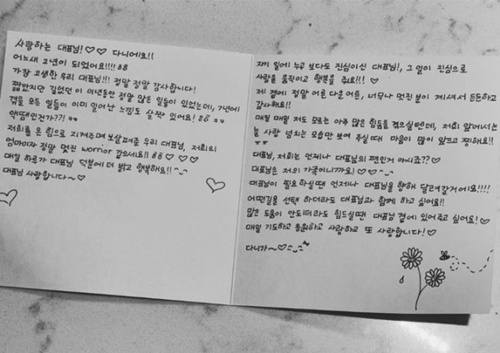 사랑하는 대표님!♡♡ 다니에요!!
어느새 2년이 되었어요!!!! 88
가장 고생한 우리 대표님!!! 정말 정말 감사합니다!
짧았지만 길었던 이 이년동안 정말 많은 일들이 있었는데, 7년에
겪을 모든 일들이 이미 일어난 느낌도 살짝 있어요! 88
액땜인건가??!
저희를 온 힘으로 지켜주며 보살펴준 우리 대표님, 저희의
엄마이자 정말 멋진 worrior 같으세요!! 88 ♡♡
매일 하루가 대표님 덕분에 더 밝고 행복해요!!
대표님 사랑합니다~♡
제 일에 누구 보다도 진심이신 대표님!, 그 일이 진심으로
사람을 움직이고 행복을 줘요!!! ♡
제 곁에 정말 어른 다운 어른, 너무나 멋진 분이 계셔서 든든하고
감사해요!!
매일 매일 저도 모르는 아주 많은 힘듦을 겪으실텐데, 저희 앞에서는
늘 사랑 넘치는 모습만 보여 주실 때 마음이 많이 앞으고 찡해요!!
대표님, 저희는 언제나 대표님의 팬인거 아시죠??♡
대표님은 저의 가족이니까요!♡♡
대표님이 필요하실땐 언제나 대표님을 향해 달려갈거에요!!!!
어떤길을 선택 하더라도 대표님과 함께 하고 싶어요!!
많은 도움이 안되더라도 힘드실땐 대표님 곁에 있어주고 싶어요!
매일 기도하고 응원하고 사랑하고 또 사랑합니다!♡
다니가~♡